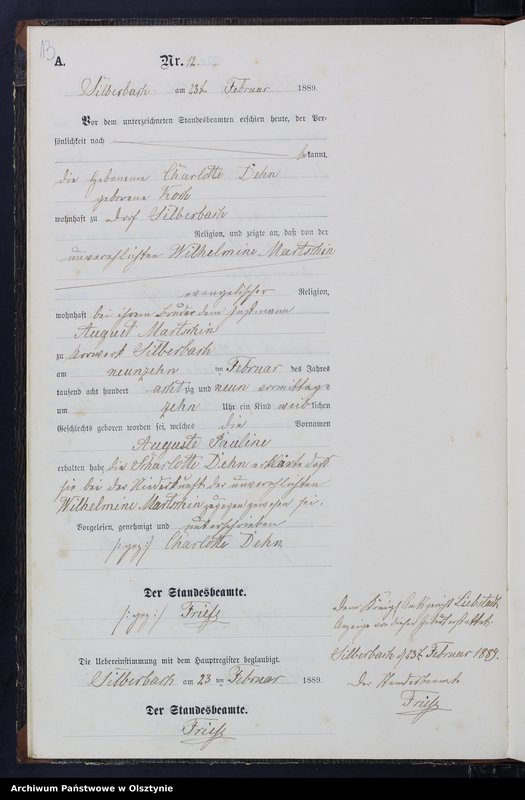 13
A.
Nr. 12.
Silberbach am 23ten Februar 1889.
Vor dem unterzeichneten Standesbeamten erschien heute, der Per-
sönlichkeit nach
bekannt,
die Hebamme Charlotte Dehn
geborene Koch
wohnhaft zu Dorf Silberbach
Religion, und zeigte an, daß von der
unverehlichten Wilhelmine Martschin
evangelischer Religion,
wohnhaft bei ihrem Bruder dem
August Martschin
zu Vorwerk Silberbach
am neunzehn ten Februar des Jahres
tausend acht hundert achtzig und neun vormittags
um zehn Uhr ein Kind weiblichen
Geschlechts geboren worden sei, welches die Vornamen
Auguste Pauline
erhalten habe die Charlotte Dehn erklärte daß
sie bei der Niederkunft der unverehlichten
Wilhelmine Martschin zugegen gewesen sei.
Vorgelesen, genehmigt und unterschrieben
/: gez :/ Charlotte Dehn
Der Standesbeamte.
/: gez :/ Friese
Die Uebereinstimmung mit dem Hauptregister beglaubigt.
Silberbach am 23 ten Februar 1889.
Der Standesbeamte.
Friese
Dem Königl. Amtsgericht Liebstadt
Anzeige von dieser Geburt erstattet.
Silberbach d. 23t Februar 1889.
Der Standesbeamte
Friese
Archiwum Państwowe w Olsztynie